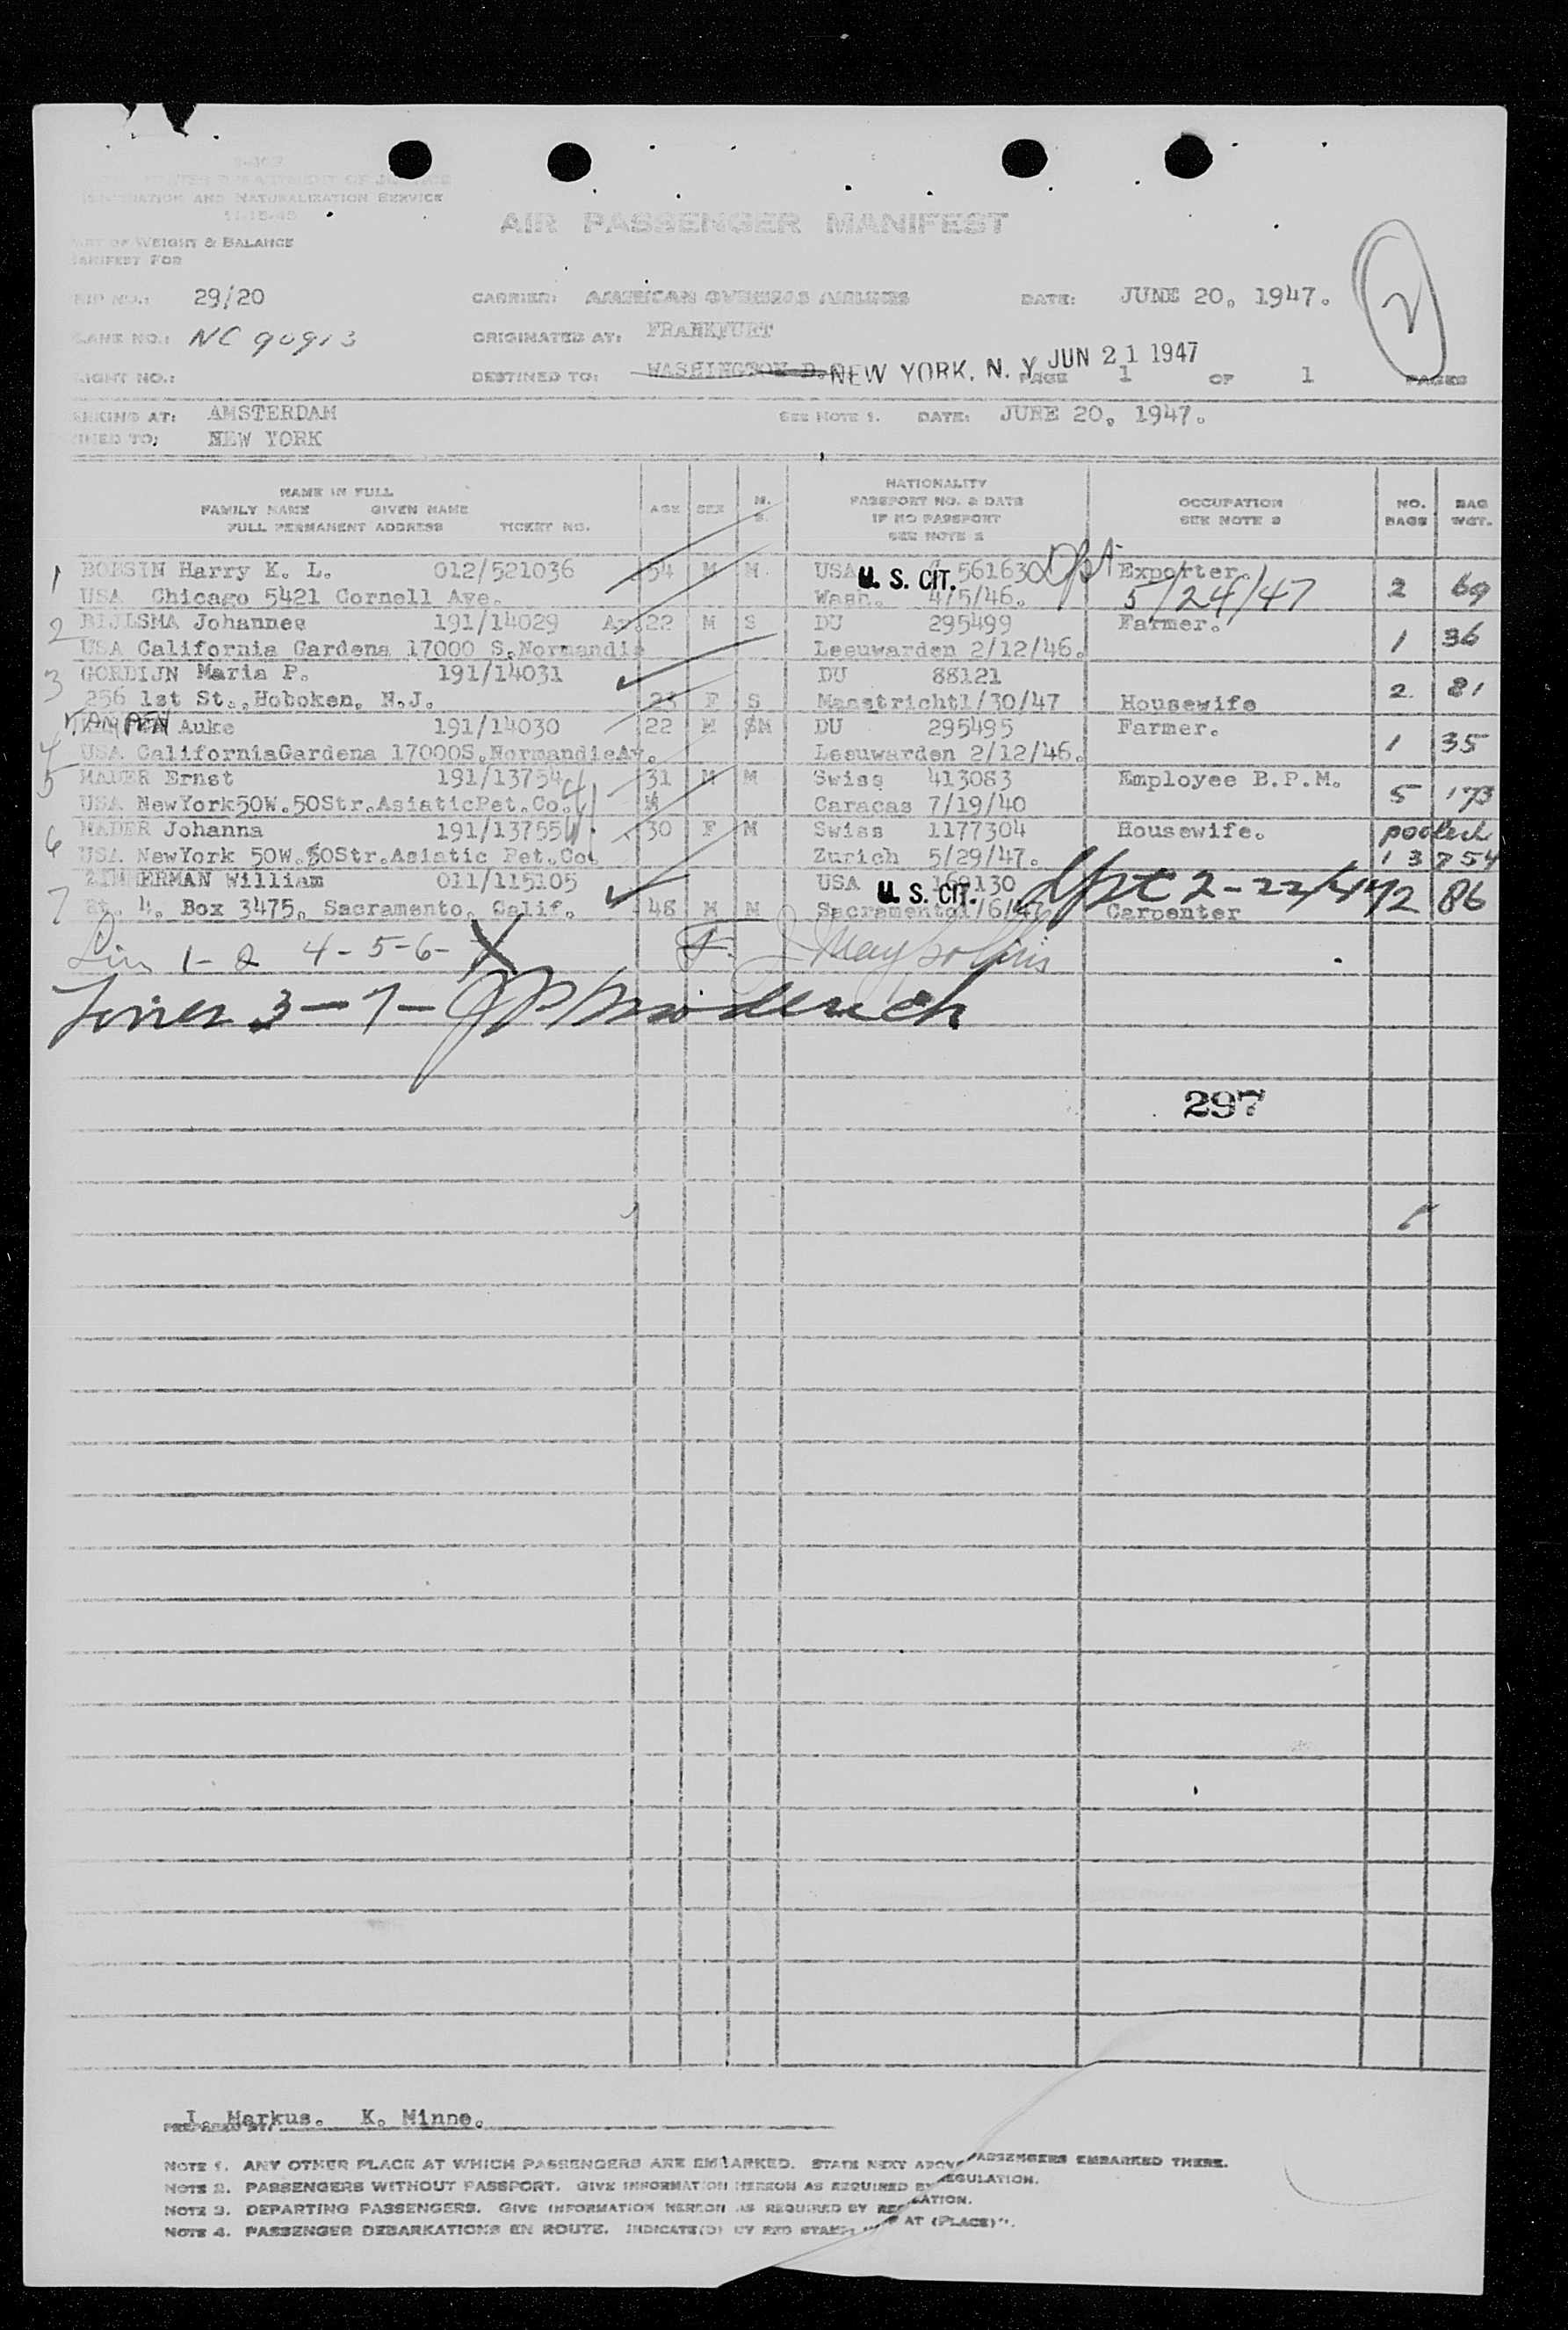 IMMIGRATION AND NATURALIZATION SERVICE
AIR PASSENGER MANIFEST
WEIGHT & BALANCE
MANIFEST FOR
29/20 CARRIER: AMERICAN OVERSEAS AIRLINES DATE: JUNE 20, 1947.
NC 90913 ORIGINATED AT: FRANKFURT
DESTINED TO: WASHINGTON D. NEW YORK, N. Y. JUN 21 1947 PAGE 1 OF 1 PAGES
2
AT: AMSTERDAM SEE NOTE 1. DATE: JUNE 20, 1947.
TO: NEW YORK
NAME IN FULL
FAMILY NAME GIVEN NAME
FULL PERMANENT ADDRESS TICKET NO.
AGE SEX M. S.
NATIONALITY
PASSPORT NO. & DATE
IF NO PASSPORT
SEE NOTE 2
OCCUPATION
SEE NOTE 3
NO. BAGS
BAG WGT.
1 Harry K. L. 012/521036 54 M M USA U. S. CIT. 561630 Dpt Exporter. 2 69
USA Chicago 5421 Cornell Ave. Wash. 4/5/46. 5/24/47
2 BIJLSMA Johannes 191/14029 Av. 22 M S DU 295499 Farmer. 1 36
USA California Gardena 17000 S.Normandie Leeuwarden 2/12/46.
3 GORDIJN Maria P. 191/14031 DU 88121 2 81
256 1st St., Hoboken, N.J. 23 F S Maastricht1/30/47 Housewife
4 Auke 191/14030 22 M SM DU 295495 Farmer. 1 35
USA CaliforniaGardena 17000S.NormandieAv. Leeuwarden 2/12/46.
5 MADER Ernst 191/13754 31 M M Swiss 413083 Employee B.P.M. 5 173
USA NewYork50W.50Str.AsiaticPet.Co. Caracas 7/19/40
6 MADER Johanna 191/13755 30 F M Swiss 1177304 Housewife. pooled
USA NewYork 50W.50Str.Asiatic Pet.Co. Zurich 5/29/47. 13754
7 ZIMMERMAN William 011/115105 USA U. S. CIT. 130 Dpt 2-22/47 2 86
Rt. 4, Box 3475, Sacramento, Calif. 48 M M Sacramento Carpenter
1-2 4-5-6-
Lines 3-7-
297
PREPARED BY: I. Markus. K. Minne.
NOTE 1. ANY OTHER PLACE AT WHICH PASSENGERS ARE EMBARKED. STATE NEXT ABOVE PASSENGERS EMBARKED THERE.
NOTE 2. PASSENGERS WITHOUT PASSPORT. GIVE INFORMATION HEREON AS REQUIRED BY REGULATION.
NOTE 3. DEPARTING PASSENGERS. GIVE INFORMATION HEREON AS REQUIRED BY REGULATION.
NOTE 4. PASSENGER DEBARKATIONS EN ROUTE. INDICATE(D) BY RED STAMP AT (PLACE)".